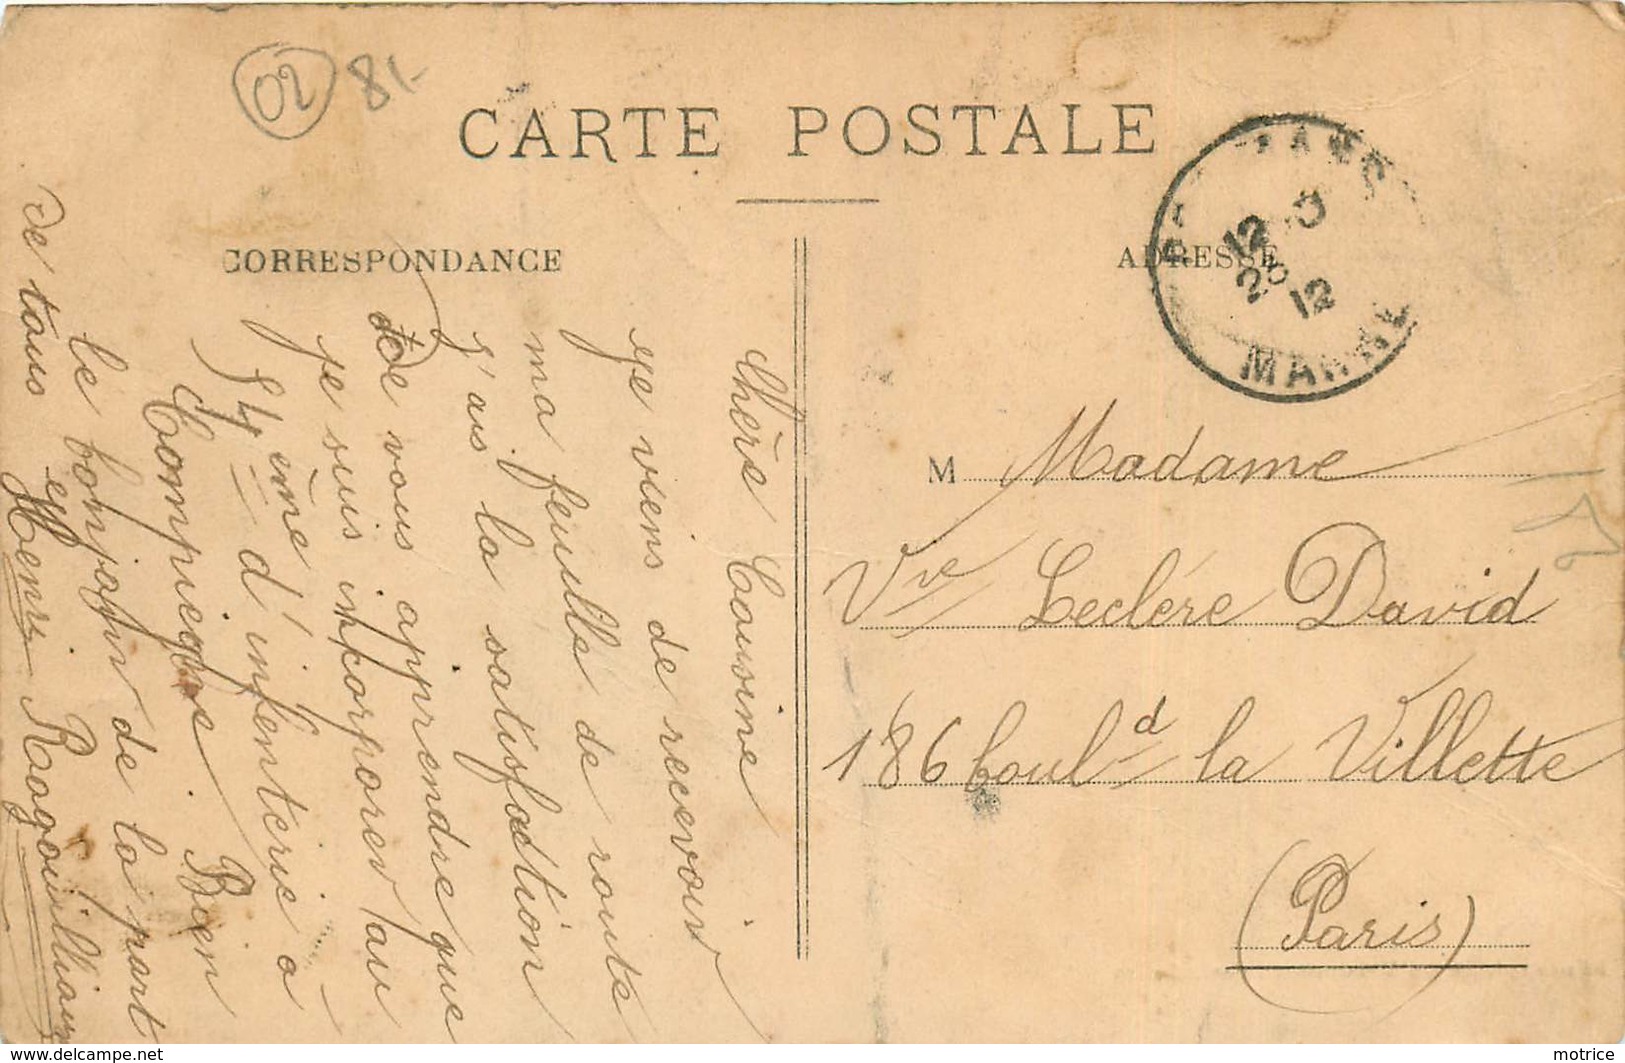 02 81-
CARTE POSTALE
CORRESPONDANCE
ADRESSE
12
25 12
MARNE
Chère Cousine
Je viens de recevoir
ma feuille de route
j'ais la satisfaction
de vous apprendre que
je suis incorporer au
54 ème d'infenterie à
Compiegne. Bien
le bonjour de la part
de tous
Henri Ragouilliaux
M Madame
Vve Leclère David
186 boul d la Villette
(Paris)
www.delcampe.net
motrice